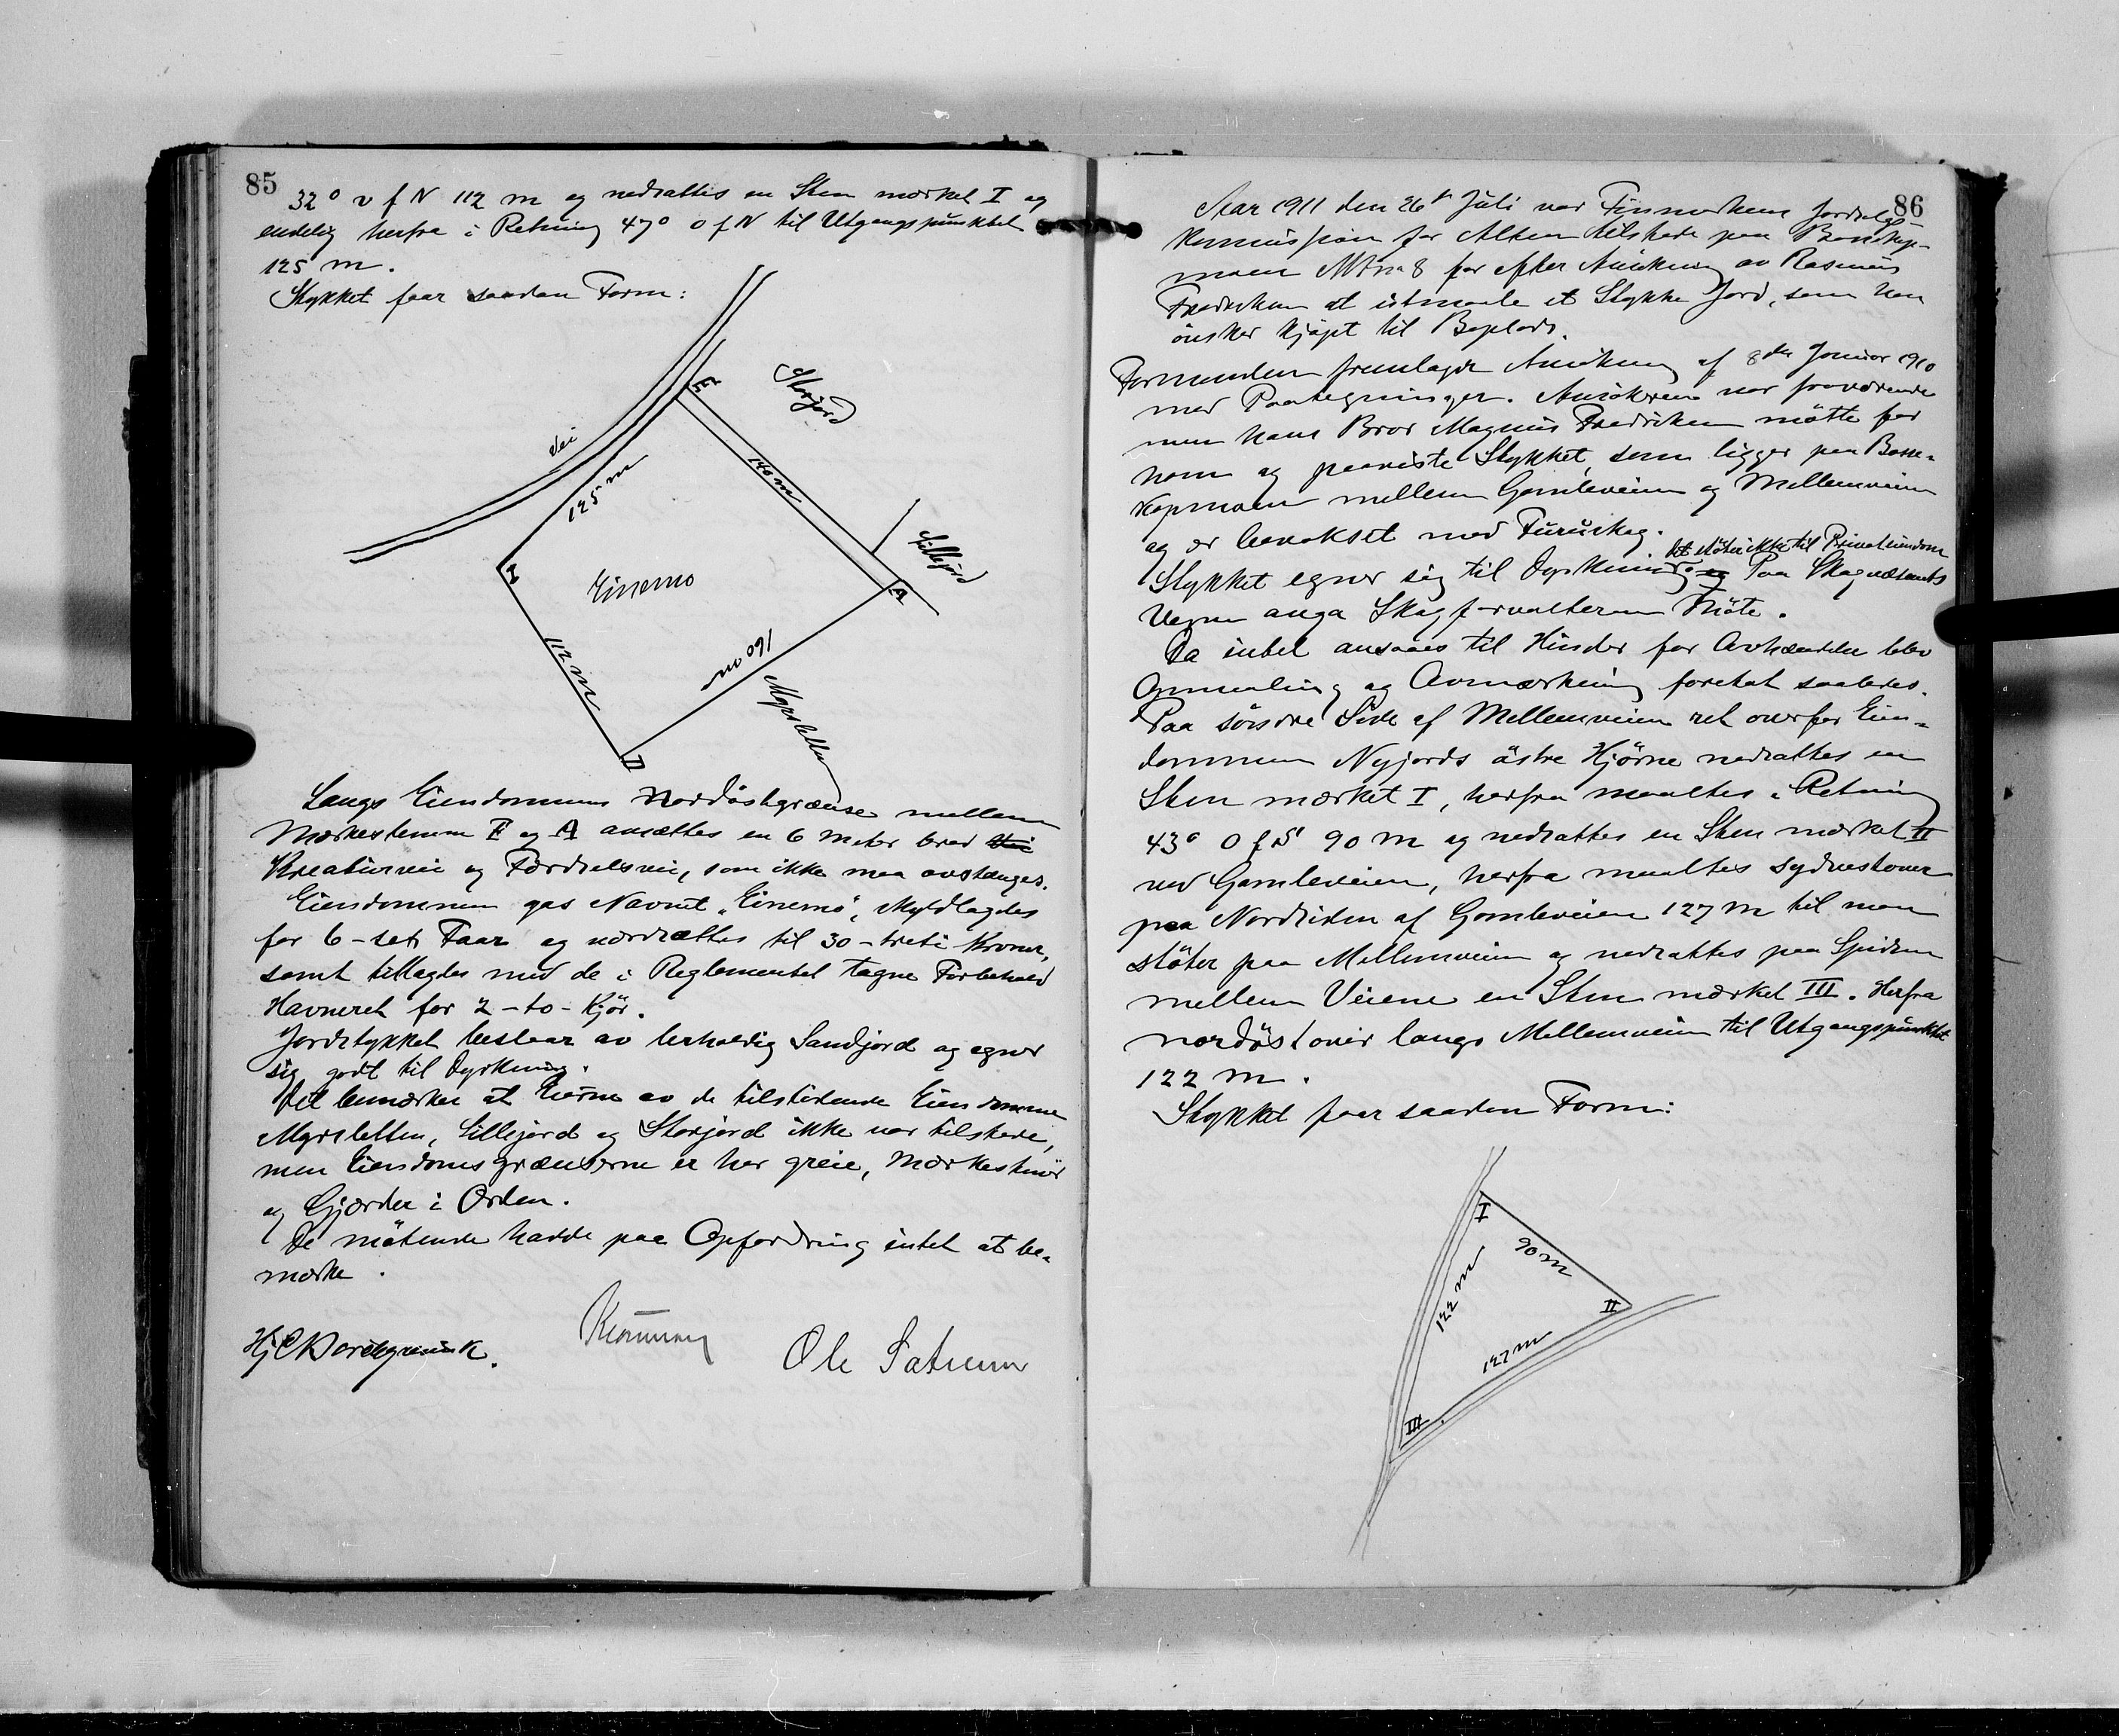 85
32° v f N 112 m og nedsattes en Sten mærket I og
endelig herfra i Retning 47° o f N til Utgangspunktet
125 m.
Stykket faar saadan Form:
Storjord
Vei
E
125 m
140 m
Lillejord
Einemo
A
112 m
160 m
Myrsletten
II
Langs Eiendommens Nordöstgrænse mellem
Mærkestenene E og A avsættes en 6 meter bred Vei
Kreaturvei og Færdselsvei, som ikke maa avstænges.
Eiendommen gas Navnet „Einemo“, skyldlagdes
for 6-seks Faar og værdsættes til 30-treti Kroner,
samt tillagdes med de i Reglementet tagne Forbehold
Havneret for 2-to-Kjör.
Jordstykket bestaar av lerholdig Sandjord og egner
sig godt til Dyrkning.
Det bemærkes at Eierne av de tilstötende Eiendomme
Myrsletten, Lillejord og Storjord ikke var tilstede,
men Eiendomsgrænserne er her greie, Mærkestener
og Gjærder i Orden.
De mötende hadde paa Opfordring intet at be-
mærke.
Ole
86
Aar 1911 den 26de Juli var Finmarkens Jordsalgs-
kommission for Alten tilstede paa Bossekop-
moen M No 8 for efter Ansökning av Rasmus
Fredriksen at utmaale et Stykke Jord, som han
önsker kjöpt til Boplads.
Formanden fremlagde Ansökning af 8de Januar 1910
med Paategninger. Ansökeren var fraværende
men hans Bror Magnus Fredriksen mötte for
ham og paaviste Stykket, som ligger paa Bosse-
kopmoen mellem Gamleveien og Mellemveien
og er bevokset med Furuskog.
det stöter ikke til Privateiendom
Stykket egner sig til Dyrkning, og Paa Skogvæsenets
Vegne anga Skogforvalteren Möte.
Da intet ansaaes til Hinder for Avhændelse blev
Opmaaling og Avmærkning foretat saaledes.
Paa söndre Side af Mellemveien ret overfor Eien-
dommen Nyjords östre Hjörne nedsattes en
Sten mærket I, herfra maaltes i Retning
43° O f S 90 m og nedsattes en Sten mærket II
ved Gamleveien, herfra maaltes sydvestover
paa Nordsiden af Gamleveien 127 m til man
stöter paa Mellemveien og nedsattes paa Spidsen
mellem Veiene en Sten mærket III. Herfra
nordöstover langs Mellemveien til Utgangspunktet
122 m.
Stykket faar saadan Form:
I
90 m
122 m
II
127 m
III